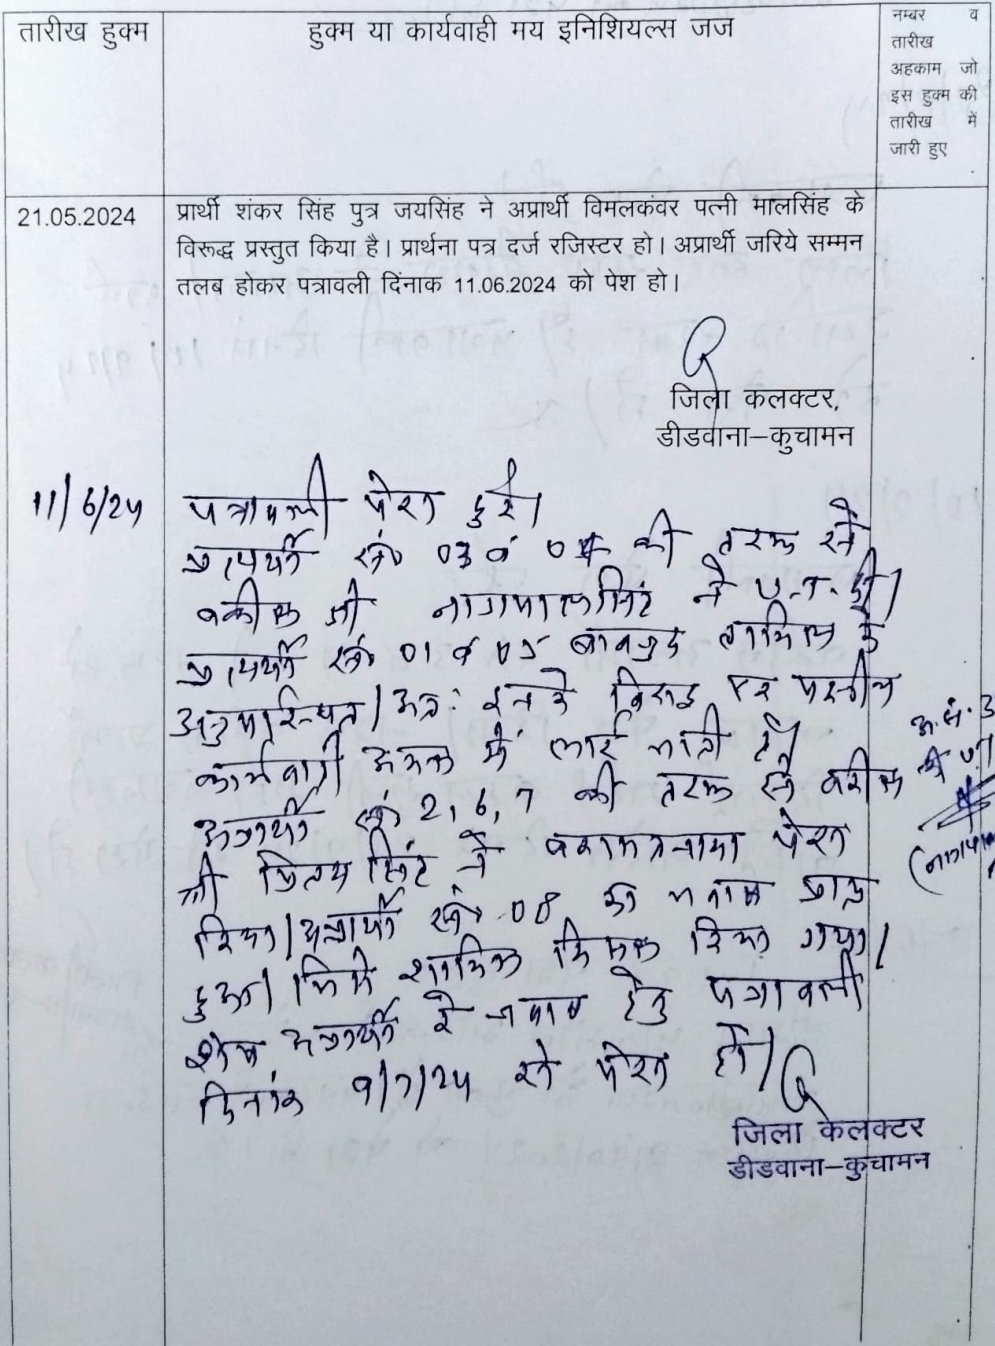 तारीख हुक्म
हुक्म या कार्यवाही मय इनिशियल्स जज
नम्बर व
तारीख
अहकाम जो
इस हुक्म की
तारीख में
जारी हुए
21.05.2024
प्रार्थी शंकर सिंह पुत्र जयसिंह ने अप्रार्थी विमलकंवर पत्नी मालसिंह के
विरूद्ध प्रस्तुत किया है। प्रार्थना पत्र दर्ज रजिस्टर हो। अप्रार्थी जरिये सम्मन
तलब होकर पत्रावली दिंनाक 11.06.2024 को पेश हो।
जिला कलक्टर,
डीडवाना–कुचामन
11/6/24
पत्रावली पेश हुई।
सं० 03 व 04 की तरफ से
वकील श्री नागपालसिंह ने U.T. दी।
सं० 01 व 05 बावजूद तामिल के
अनुपस्थित। अतः इनके विरूद्ध एक पक्षीय
कार्यवाही अमल में लाई जाती है।
अप्रार्थी सं० 2, 6, 7 की तरफ से वकील
श्री सिंह ने वकालतनामा पेश
किया। अप्रार्थी सं० 08 का जवाब प्राप्त
हुआ। जिसे शामिल मिसल किया गया।
शेष अप्रार्थी के जवाब हेतु पत्रावली
दिनांक 9/7/24 को पेश हो।
जिला कलक्टर
डीडवाना–कुचामन